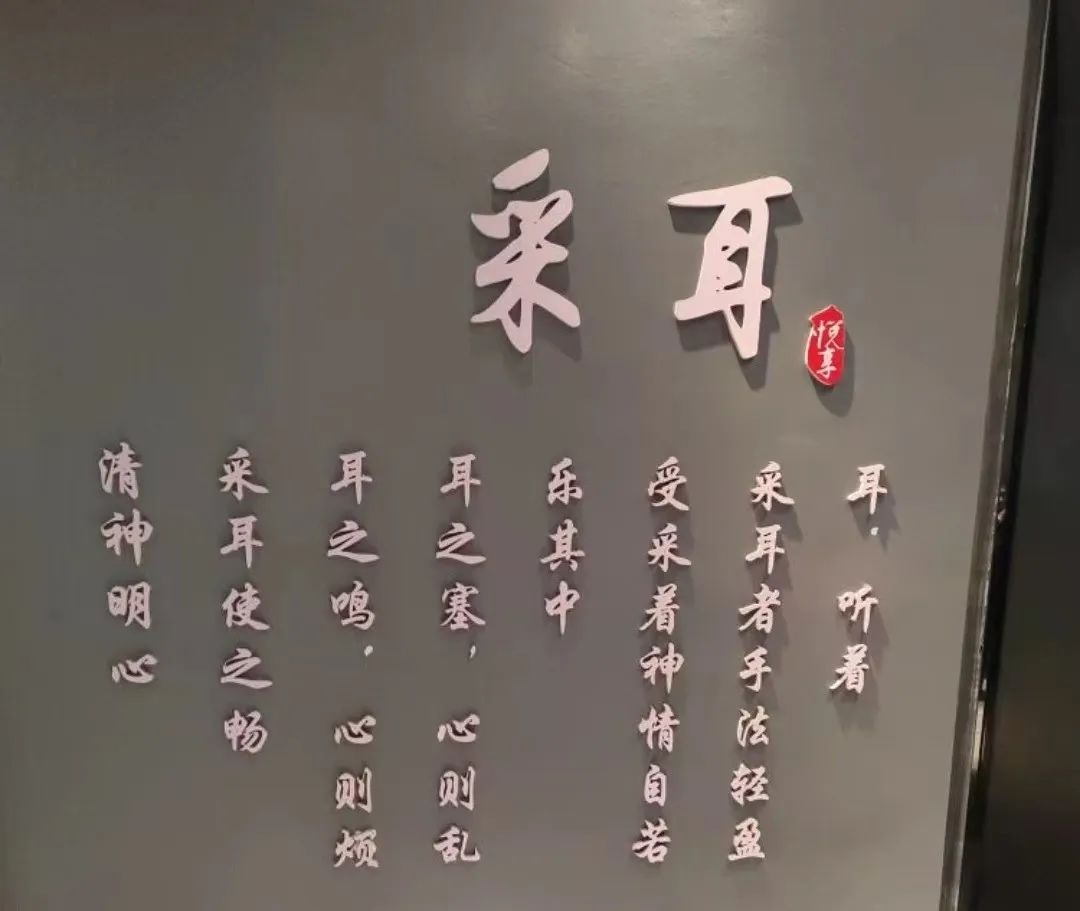 采耳
悦享
耳，听着
采耳者手法轻盈
受采着神情自若
乐其中
耳之塞，心则乱
耳之鸣，心则烦
采耳使之畅
清神明心